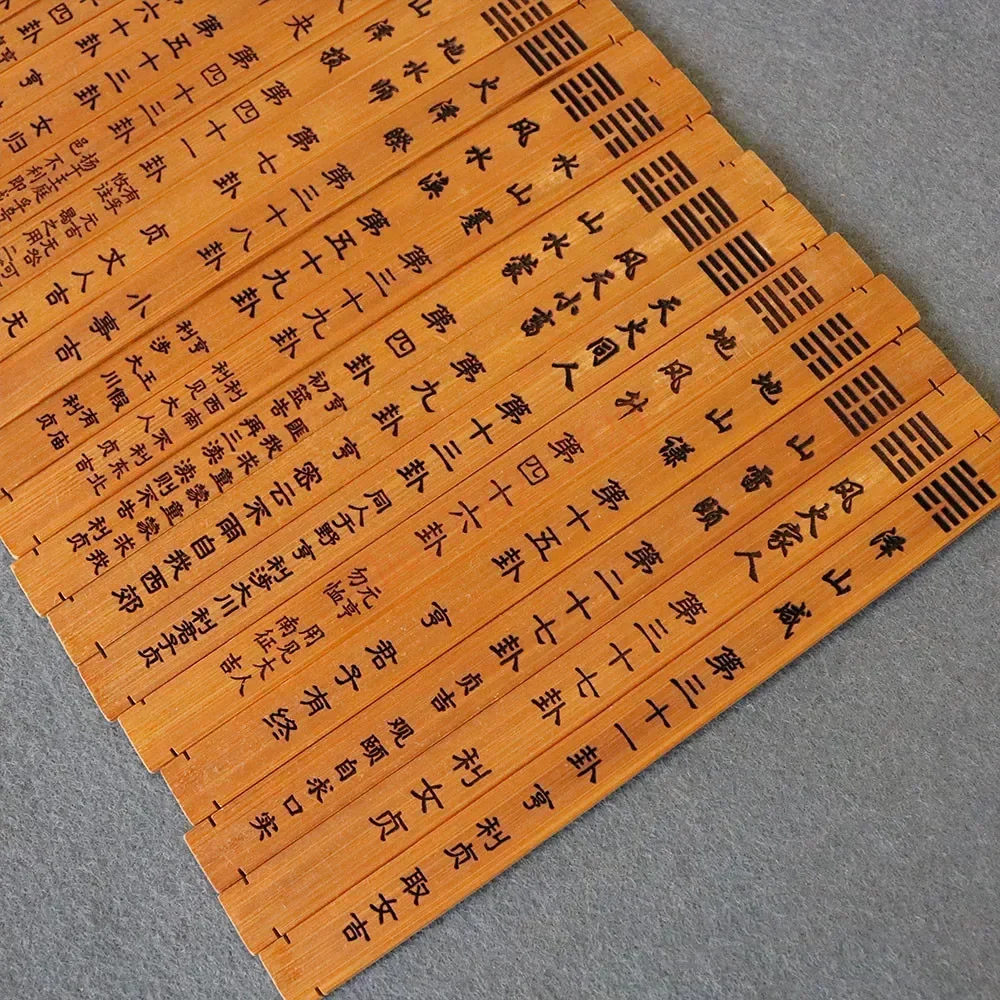 泽山咸 第三十一卦 亨利贞取女吉
风火家人 第三十七卦 利女贞
山雷颐 第二十七卦 贞吉观颐自求口实
地山谦 第十五卦 亨君子有终
地风升 第四十六卦
元亨用见大人
勿恤南征吉
天火同人 第十三卦 同人于野亨利涉大川利君子贞
风天小畜 第九卦 亨密云不雨自我西郊
山水蒙 第四卦
亨匪我求童蒙童蒙求我
初筮告再三渎渎则不告利贞
水山蹇 第三十九卦
利西南不利东北
利见大人贞吉
风水涣 第五十九卦
亨王假有庙
利涉大川利贞
火泽睽 第三十八卦 小事吉
地水师 第七卦 贞丈人吉无
山泽损 第四十一卦
有孚元吉无咎可
攸往曷之用二
夬 第四十三卦
扬于王庭孚号
邑 不利即戎
第五十三卦 女归
卦 亨